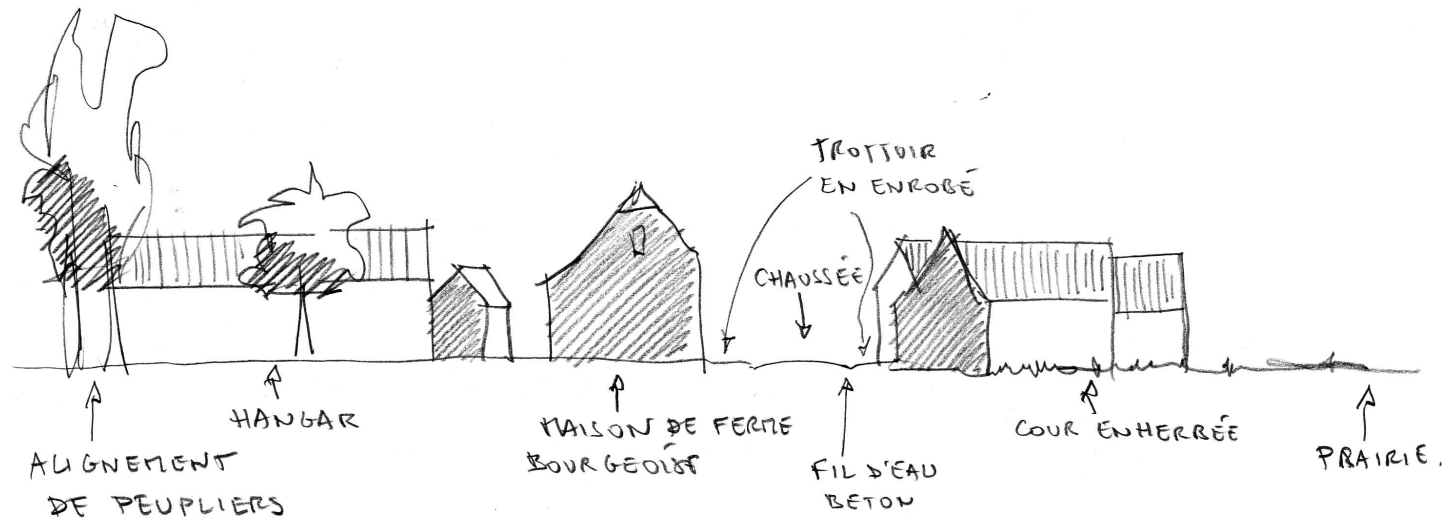 TROTTOIR
EN ENROBÉ
CHAUSSÉE
ALIGNEMENT
DE PEUPLIERS
HANGAR
MAISON DE FERME
BOURGEOISE
FIL D'EAU
BETON
COUR ENHERBÉE
PRAIRIE.